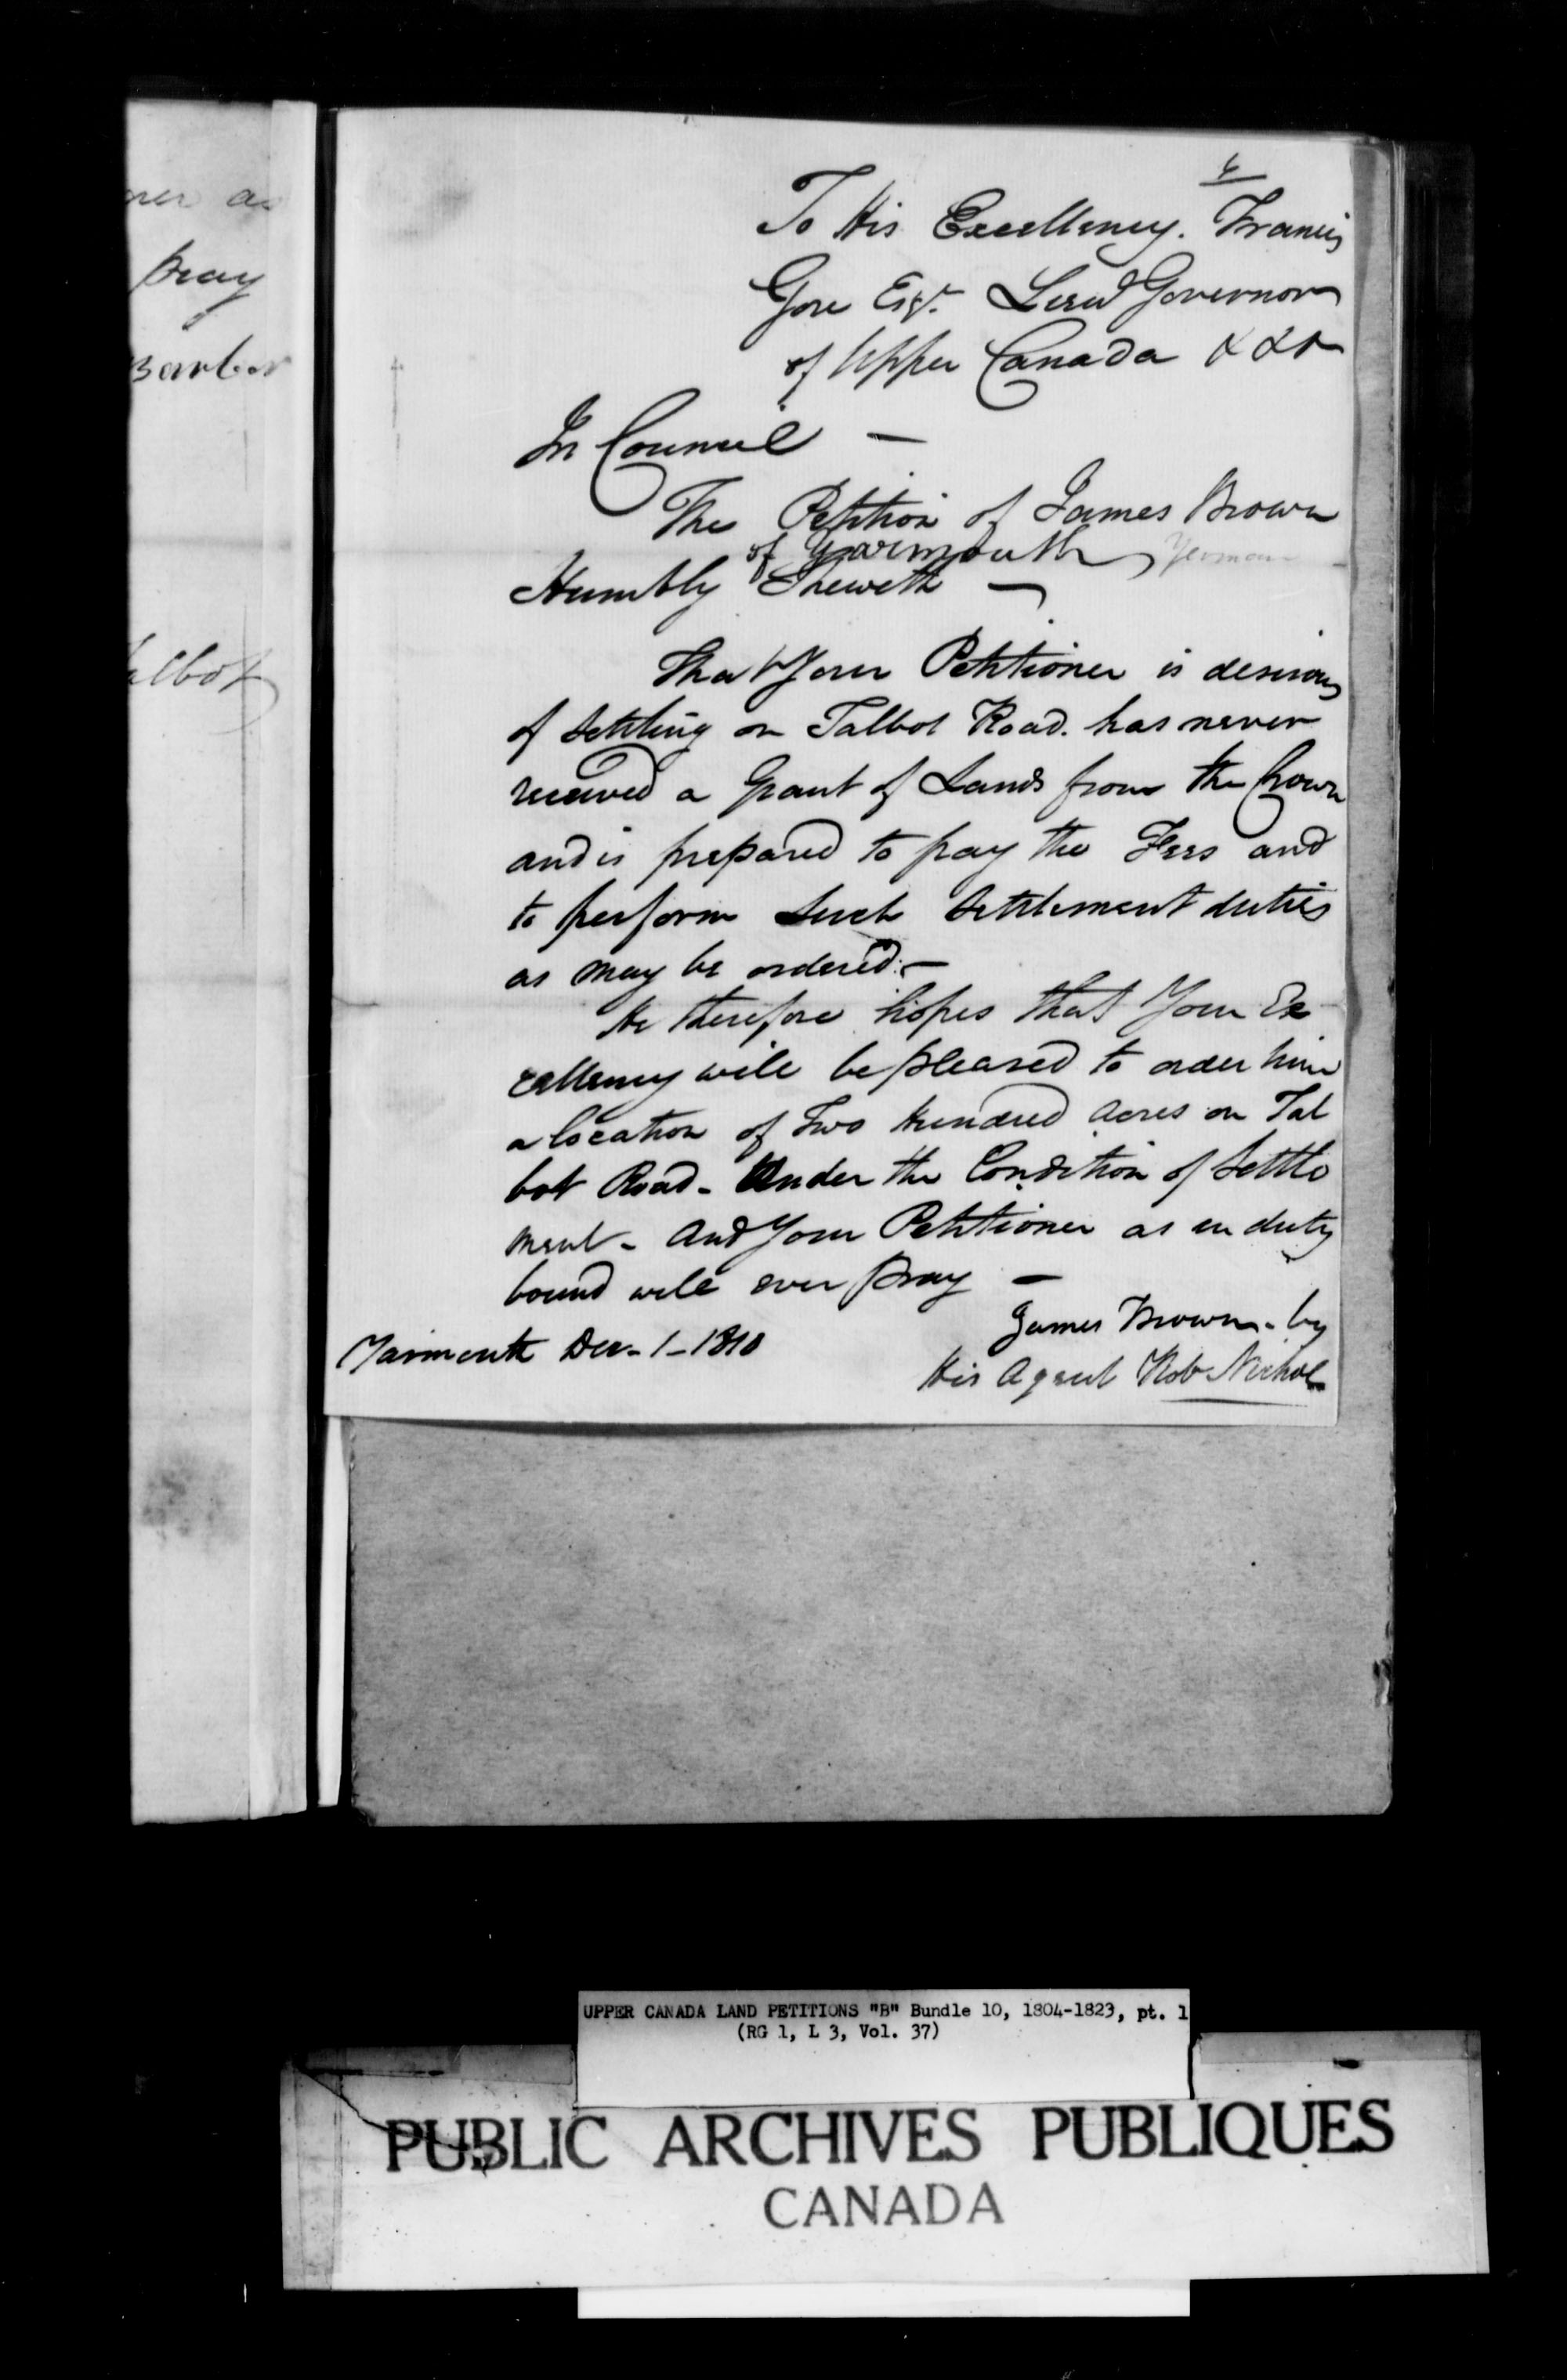 ner as
pray
Barber
albot
6
To His Excellency. Francis
Gore Esqr. Lieut Governor
of Upper Canada &&&
In Council —
The Petition of James Brown
of Yarmouth Yeoman
Humbly Sheweth —
That Your Petitioner is desirous
of settling on Talbot Road. has never
received a Grant of Lands from the Crown
and is prepared to pay the Fees and
to perform such settlement duties
as may be ordered. —
He therefore hopes that Your Ex
cellency will be pleased to order him
a location of Two Hundred Acres on Tal
bot Road - Under the Condition of Settle
ment - And Your Petitioner as in duty
bound will ever pray —
James Brown - by
Yarmouth Dec - 1 - 1810
His Agent Rob Nichol
UPPER CANADA LAND PETITIONS "B" Bundle 10, 1804-1823, pt. 1
(RG 1, L 3, Vol. 37)
PUBLIC ARCHIVES PUBLIQUES
CANADA